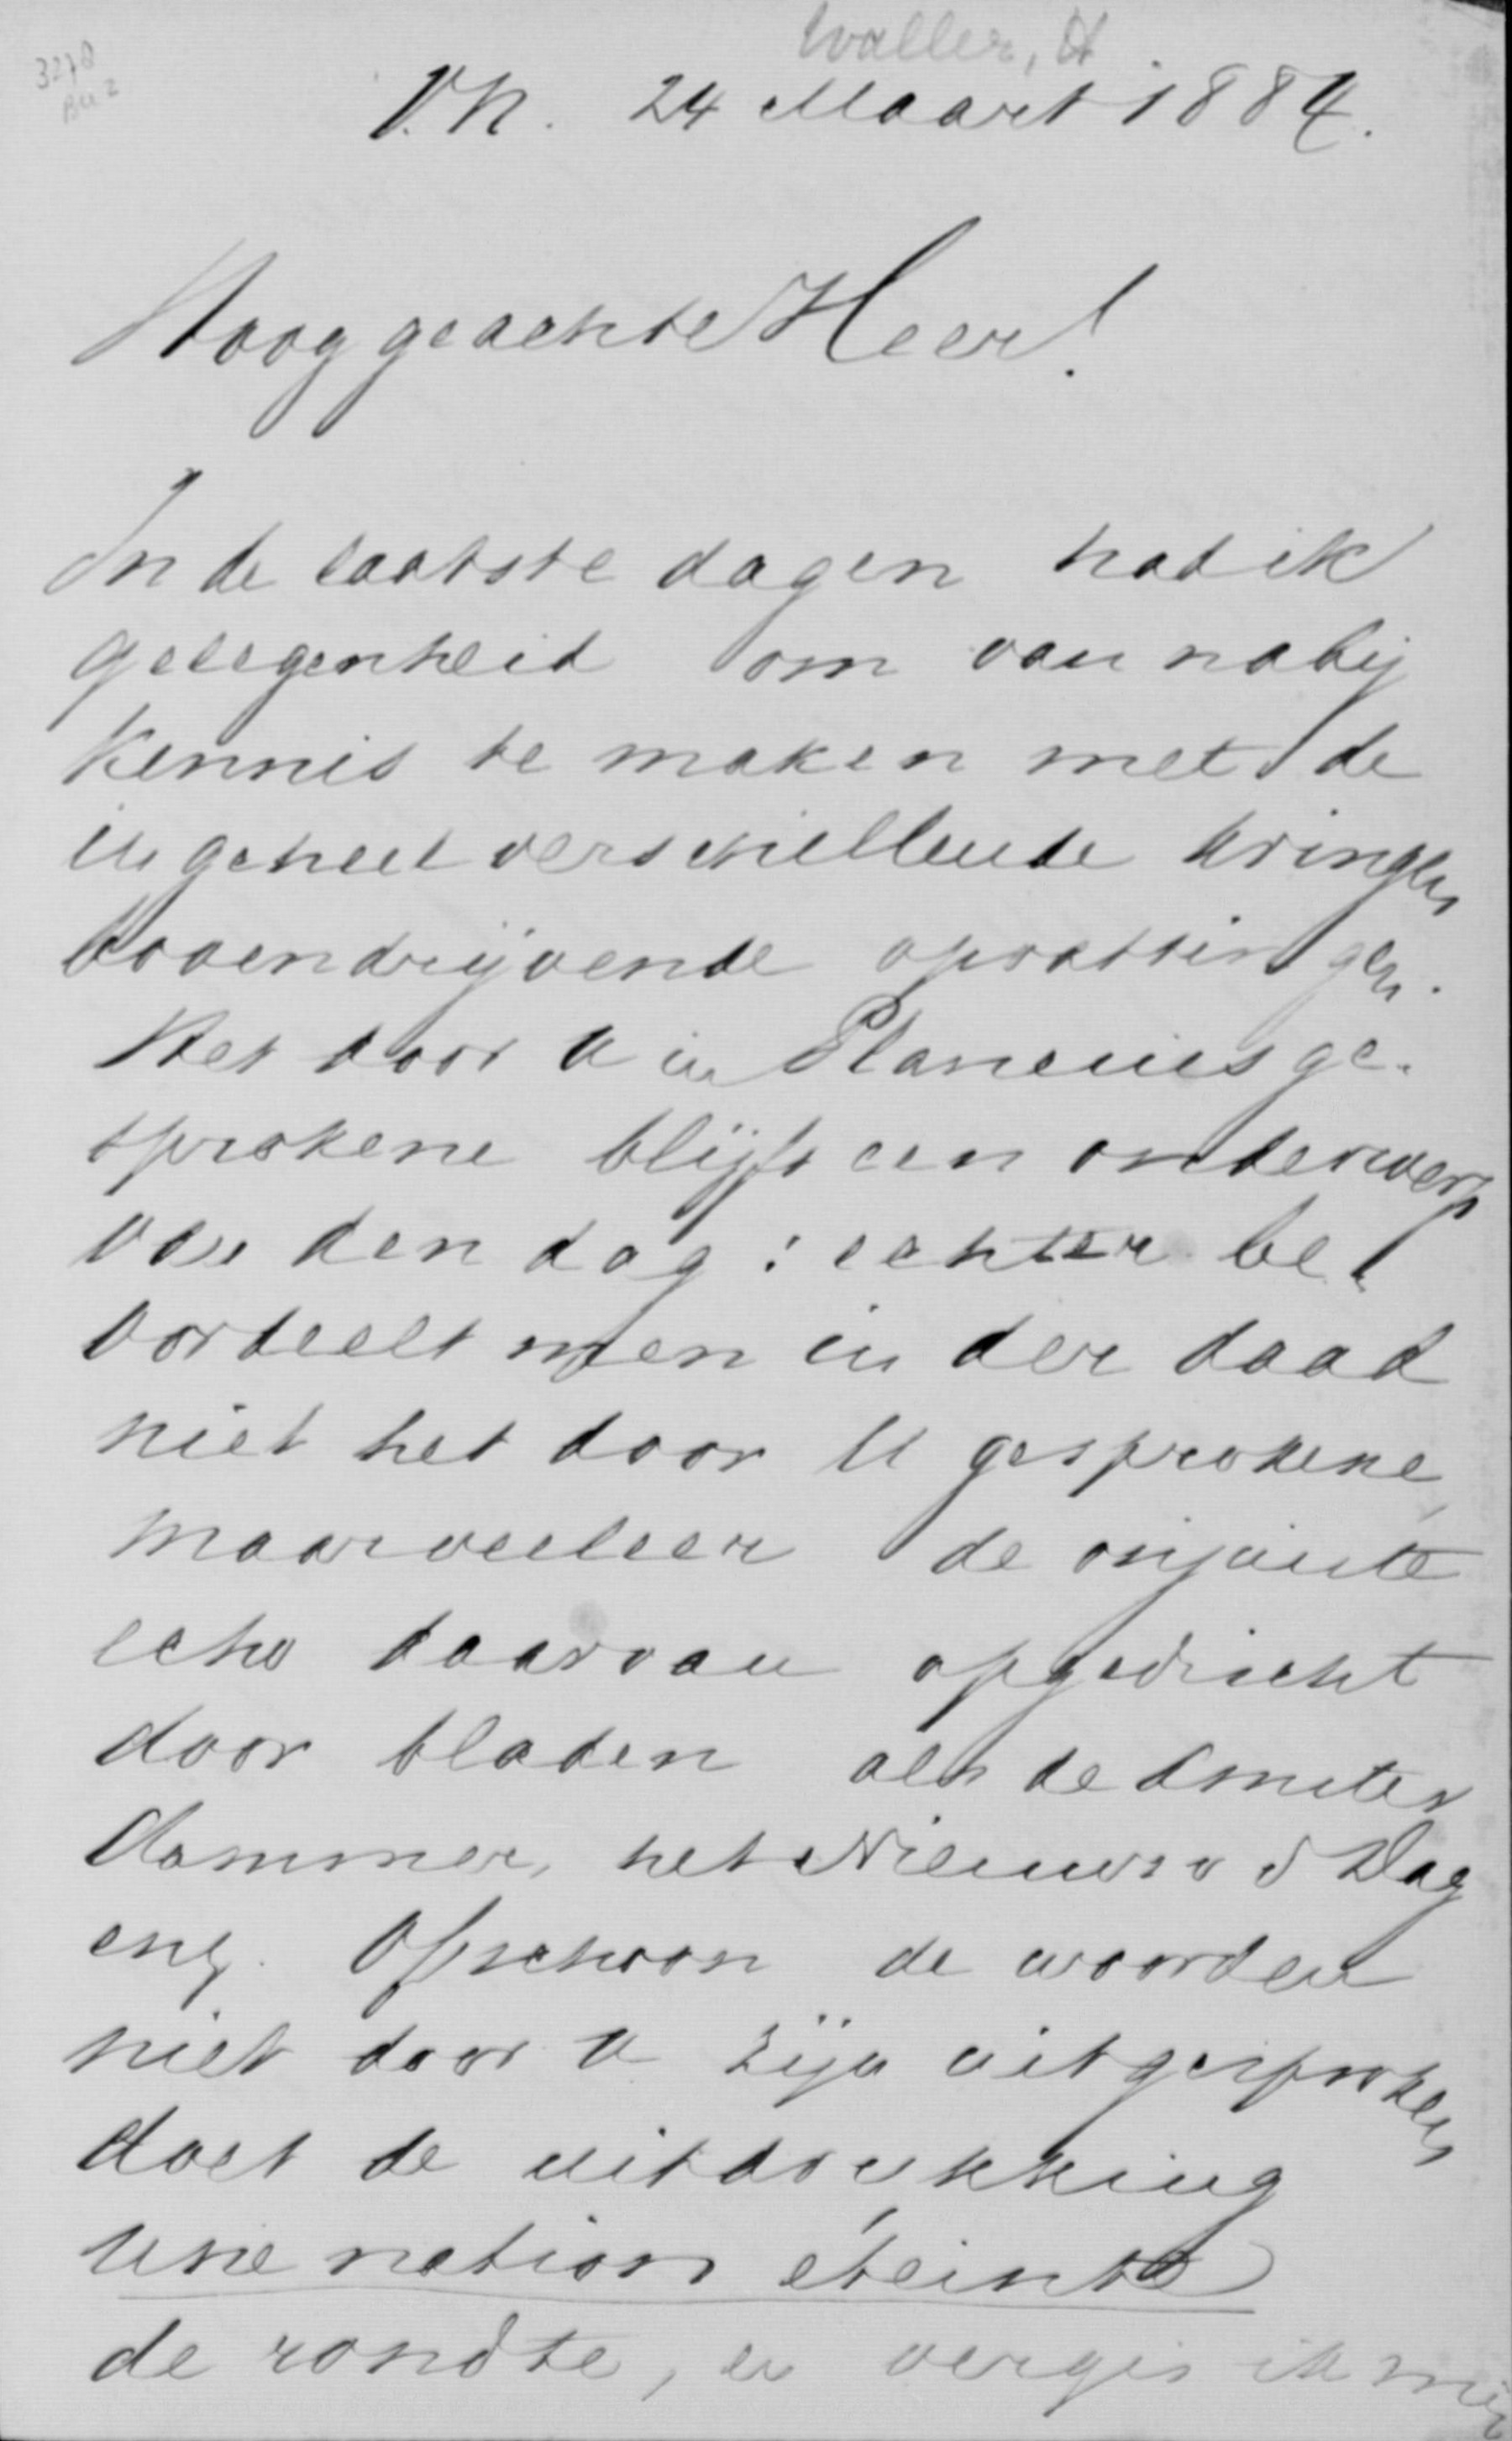 Waller, H
3278
Bu 2
V.N. 24 Maart 1884.
Hooggeachte Heer!
In de laatste dagen had ik
gelegenheid om van nabij
kennis te maken met de
in geheel verschillende kringen
bovendrijvende opvattingen.
Het door U in Plancius ge-
sprokene blijft een onderwerp
van den dag: echter be-
oordeelt men in der daad
niet het door U gesprokene,
maar veeleer de onjuiste
echo daarvan opgedischt
door bladen als de Amster
dammer, het Nieuws v d Dag
enz. Ofschoon de woorden
niet door U zijn uitgesproken
doet de uitdrukking
une nation éteinte
de rondte, en vergis ik mij